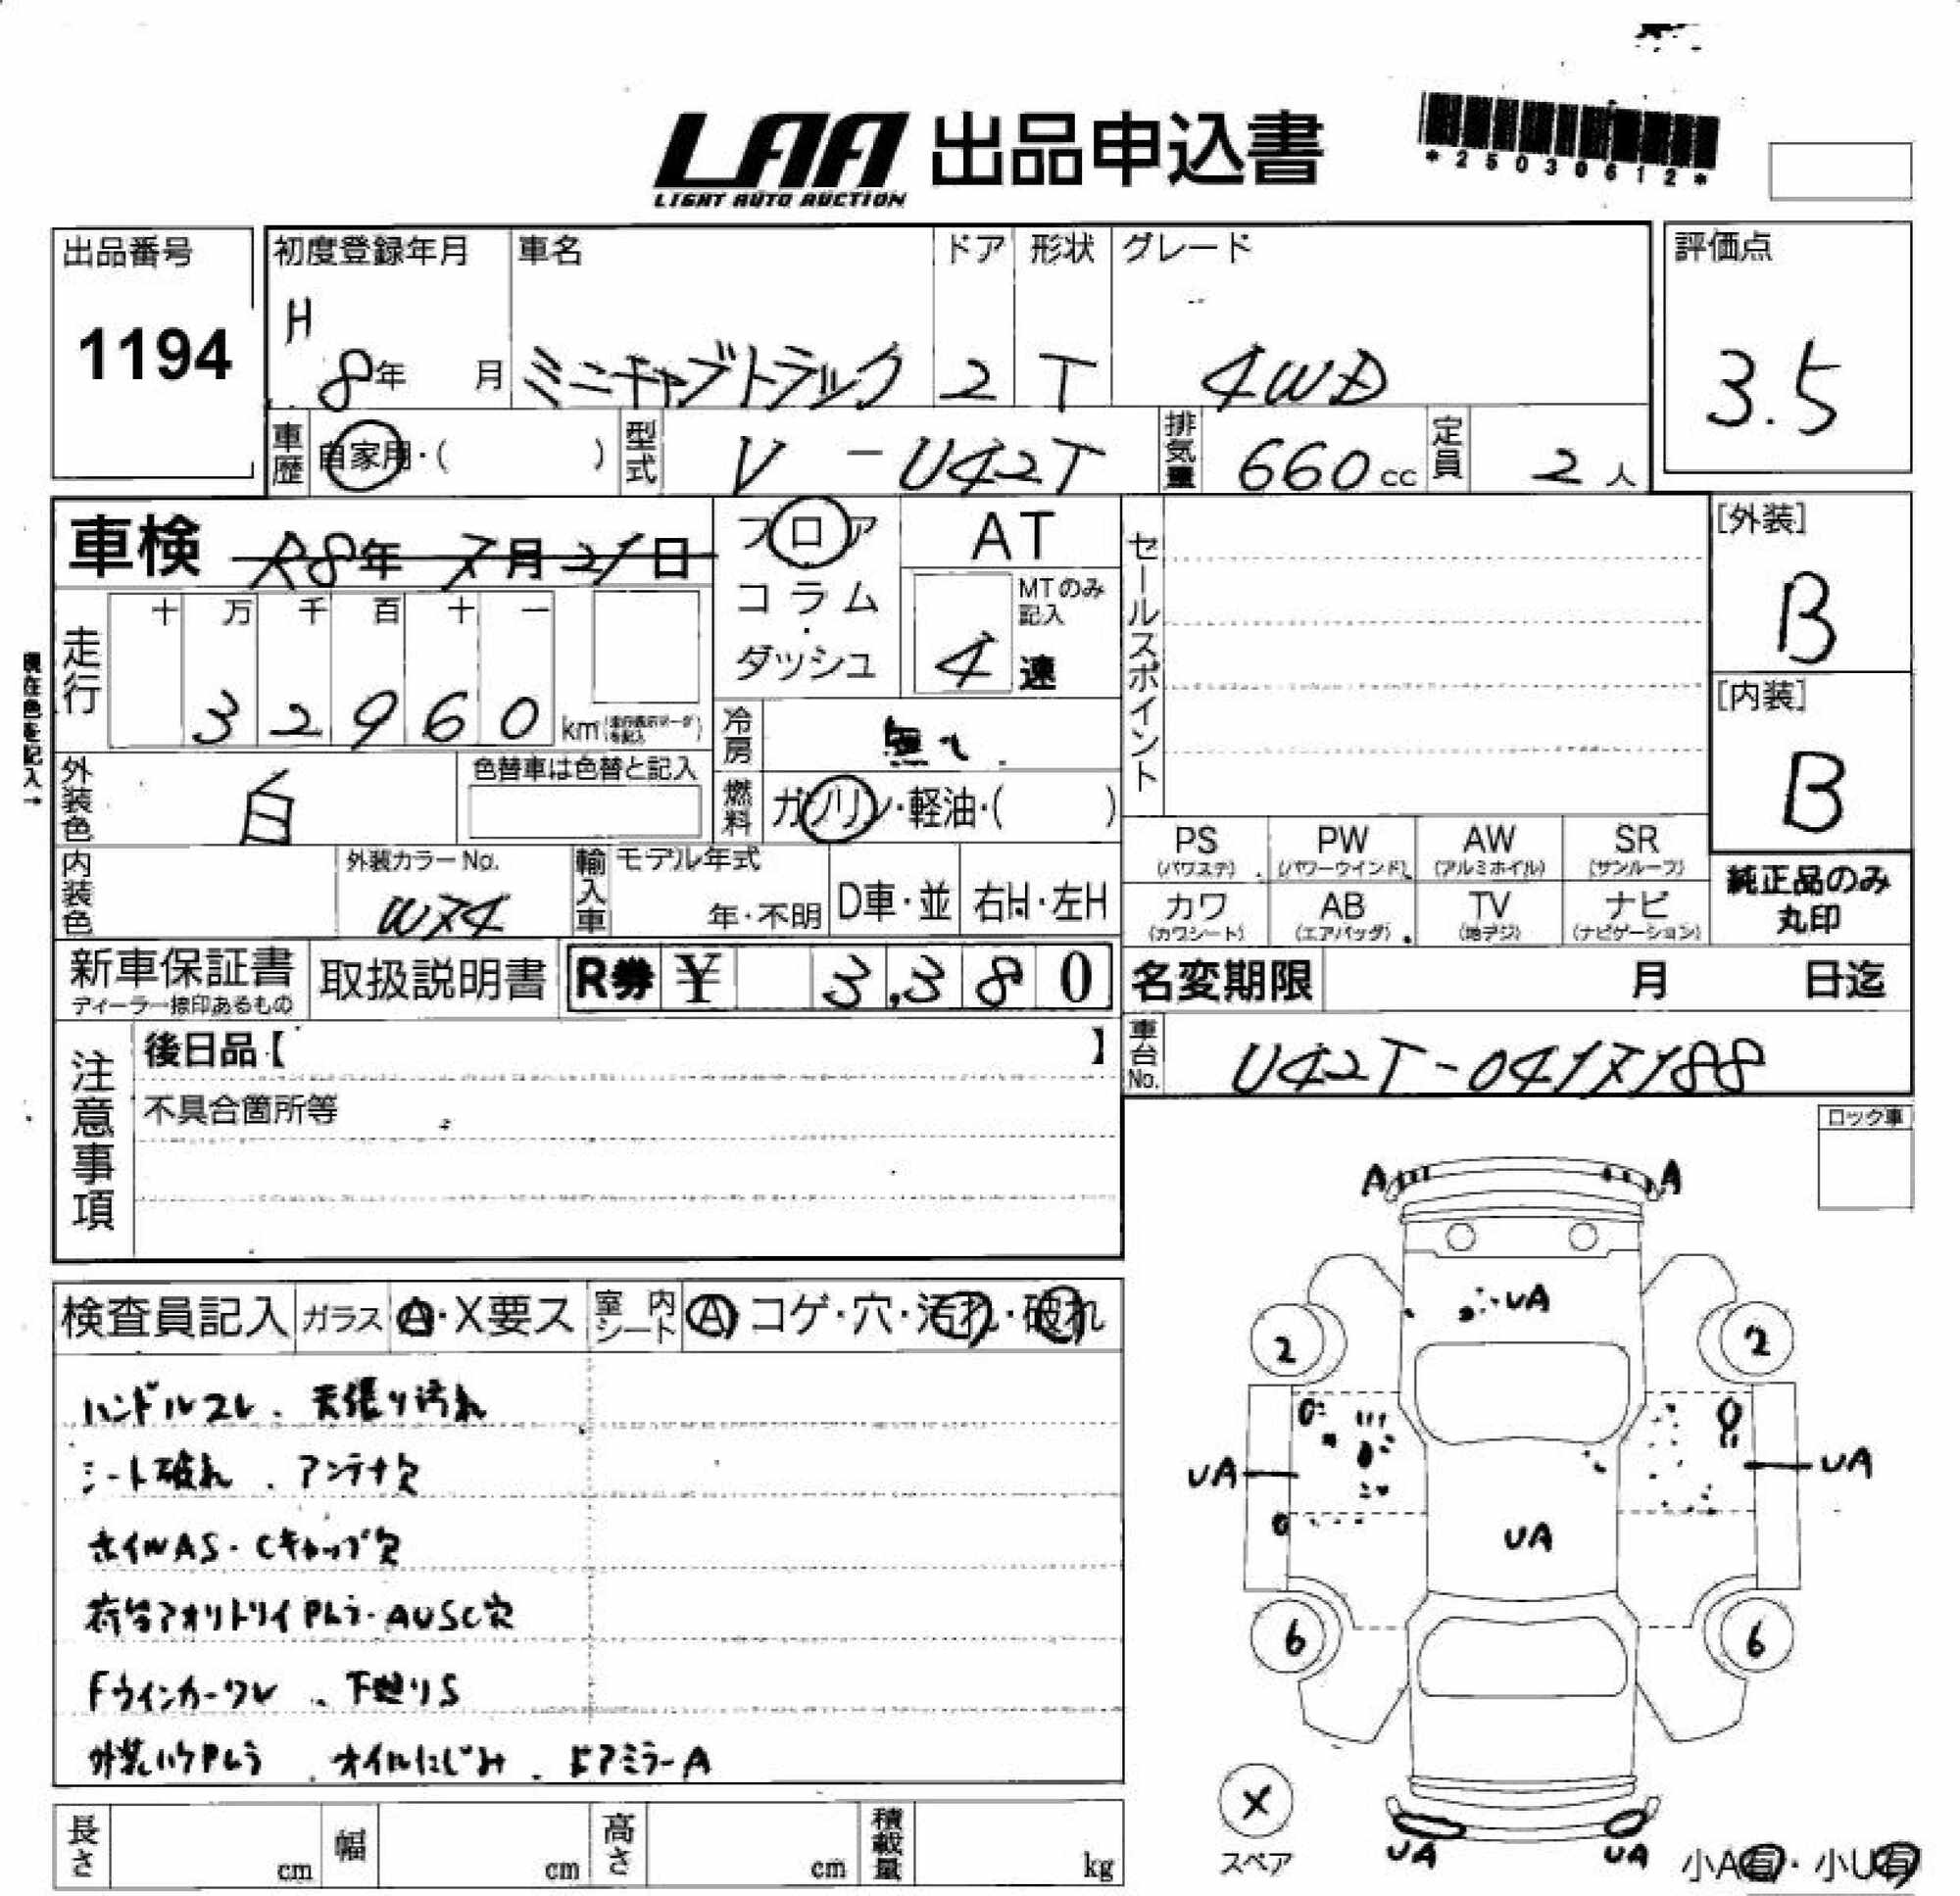 LAA 出品申込書
LIGHT AUTO AUCTION
*25030612*
出品番号 初度登録年月 車名 ドア 形状 グレード 評価点
1194 H 8年 月 ミニキャブトラック 2 T 4WD 3.5
車歴 自家用・( ) 型式 V-U42T 排気量 660cc 定員 2人
車検 R8年 7月21日 フロア AT セールスポイント [外装]
コラム・ MTのみ記入 B
ダッシュ 4速
走行 十 万 千 百 十 一
32960 km [内装]
現在色を記入→
冷房 無し B
外装色 白 色替車は色替と記入 燃料 ガソリン・軽油・( )
PS (パワステ) PW (パワーウインド) AW (アルミホイル) SR (サンルーフ) 純正品のみ
カワ (カワシート) AB (エアバッグ) TV (地デジ) ナビ (ナビゲーション) 丸印
内装色 外装カラーNo. W74 輸入車 モデル年式 年・不明 D車・並 右H・左H
新車保証書 取扱説明書 R券 ¥ 3,380 名変期限 月 日迄
ディーラー捺印あるもの
注意事項 後日品【 】 車台No. U42T-0417188
不具合箇所等
ロック車
A A
検査員記入 ガラス A・X要ス 室内シート A コゲ・穴・汚れ・破れ
UA
2 2
ハンドルコレ. 天張り汚れ
シート破れ. アンテナ欠
UA UA
ホイルAS・Cキャップ欠
UA
荷台アオリトリイPムラ・AUSC穴
6 6
Fウインカーワレ. 下廻りS
外装ハケPムラ. オイルにじみ. ドアミラーA
X
スペア
UA UA
小A有・小U有
長さ cm 幅 cm 高さ cm 積載量 kg